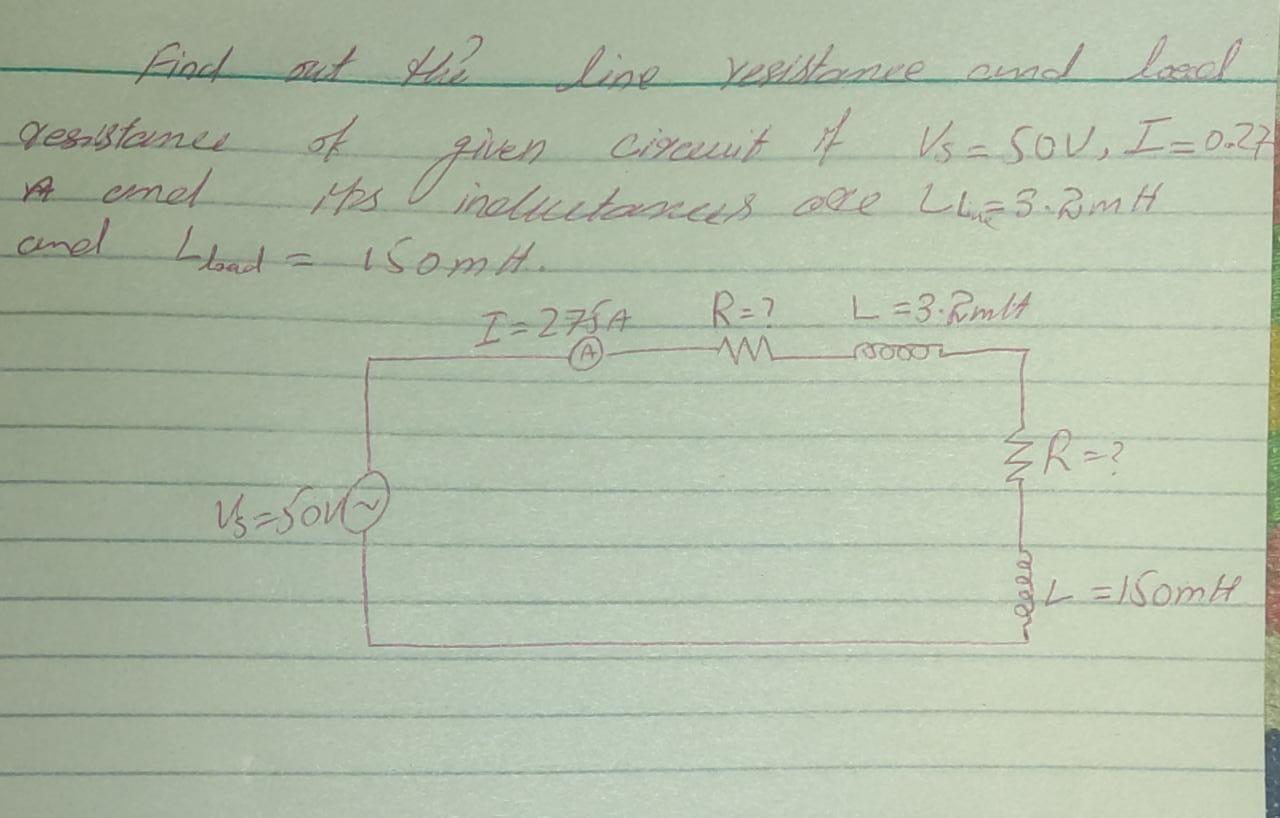 Find out the line resistance and load
resistance of given circuit if Vs = 50V, I = 0.27
A and its inductances are LLine = 3.2mH
and Lload = 150mH.
I = 275A R = ? L = 3.2mH
A
R = ?
Vs = 50V
L = 150mH